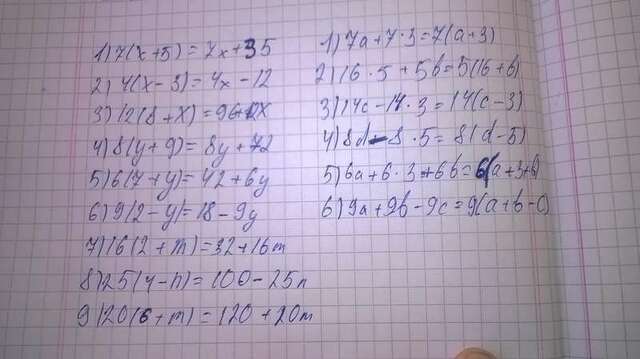 1) 7(x+5)=7x+35
2) 4(x-3)=4x-12
3) 12(8+x)=96+12x
4) 8(y+9)=8y+72
5) 6(7+y)=42+6y
6) 9(2-y)=18-9y
7) 16(2+m)=32+16m
8) 25(4-n)=100-25n
9) 20(6+m)=120+20m
1) 7a+7·3=7(a+3)
2) 16·5+5b=5(16+b)
3) 14c-14·3=14(c-3)
4) 8d-8·5=8(d-5)
5) 6a+6·3+6b=6(a+3+b)
6) 9a+9b-9c=9(a+b-c)